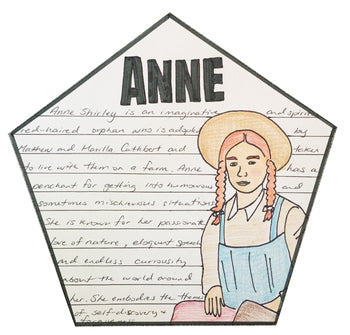 ANNE
Anne Shirley is an imaginative and spirit
red-haired orphan who is adopted by
Matthew and Marilla Cuthbert and taken
to live with them on a farm. Anne has a
penchant for getting into humourous and
sometimes mischievous situations
She is known for her passionate
love of nature, eloquent speech
and endless curiousity
about the world around
her. She embodies the themes
of self-discovery &
forgiveness